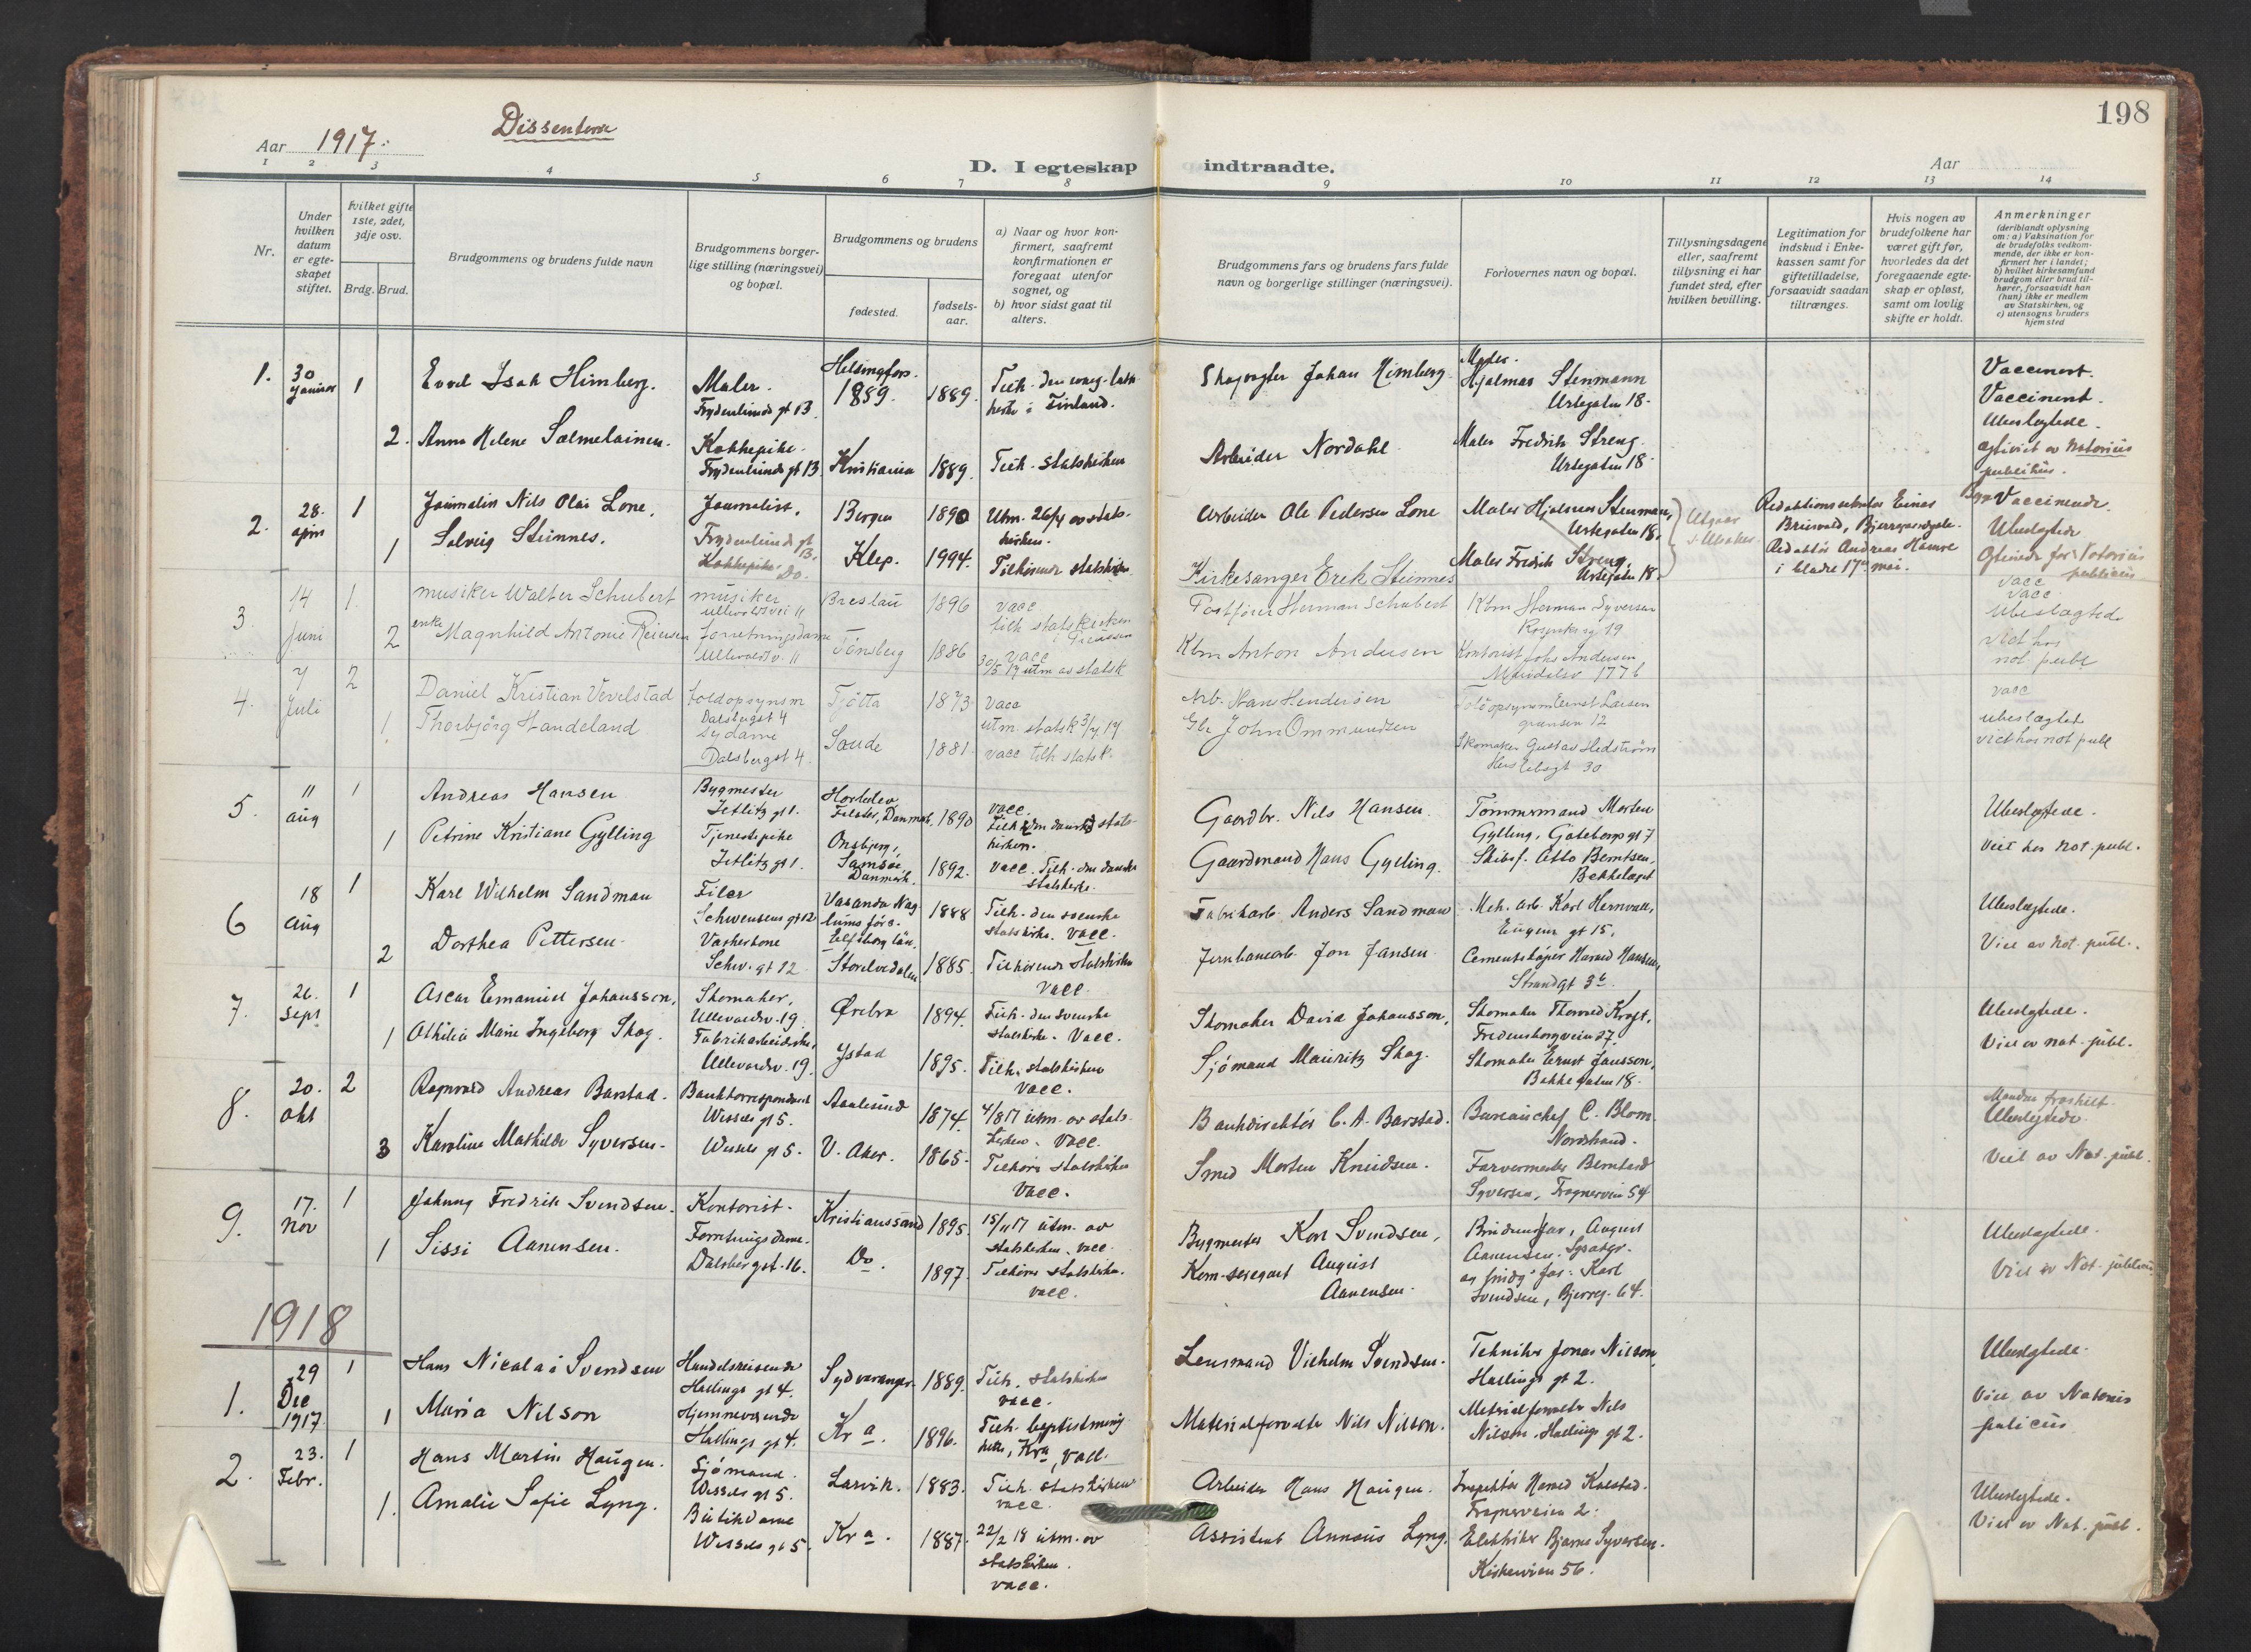 198
Dissentere
Aar 1917.
Aar
D. I egteskap indtraadte.
1 2 3 4 5 6 7 8 9 10 11 12 13 14
Nr.
Under hvilken datum er egteskapet stiftet.
hvilket gifte 1ste, 2det, 3dje osv.
Brdg. Brud.
Brudgommens og brudens fulde navn
Brudgommens borgerlige stilling (næringsvei) og bopæl.
Brudgommens og brudens
fødested.
fødselsaar.
a) Naar og hvor konfirmert, saafremt konfirmationen er foregaat utenfor sognet, og
b) hvor sidst gaat til alters.
Brudgommens fars og brudens fars fulde navn og borgerlige stillinger (næringsvei).
Forlovernes navn og bopæl.
Tillysningsdagene eller, saafremt tillysning ei har fundet sted, efter hvilken bevilling.
Legitimation for indskud i Enkekassen samt for giftetilladelse, forsaavidt saadan tiltrænges.
Hvis nogen av brudefolkene har været gift før, hvorledes da det foregaaende egteskap er opløst, samt om lovlig skifte er holdt.
Anmerkninger
(deriblandt oplysning om: a) Vaksination for de brudefolks vedkommende, der ikke er konfirmert her i landet;
b) hvilket kirkesamfund brudgom eller brud tilhører, forsaavidt han (hun) ikke er medlem av Statskirken, og
c) utensogns bruders hjemsted
1. 30 Januar 1 Isak Himberg. Maler. Frydenlunds gt 13. Helsingfors. 1889. 1889. Tilh. den evang. luth. kirke i Finland. Johan Himberg. Maler. Hjalmar Stenmann Urtegaten 18. Vaccinert.
Vaccinert.
2. Anna Helene Salmelainen. Kokkepike. Frydenlunds gt 13. Kristiania 1889. Tilh. statskirken Arbeider Nordahl. Maler Fredrik Streng. Urtegaten 18. Ubeslegtede.
Notarius publicus.
2. 28. april 1 Journalist Nils Olai Lone. Journalist. Frydenlunds gt 13. Bergen 1890 Utm. 26/4 av statskirken. Arbeider Ole Pedersen Lone Maler Hjalmar Stenmann, Urtegaten 18. Utgaar Einar Vaccinerede.
1 Solveig Steinnes. Kokkepike. Do. Klep. 1994. Tilhørende statskirken Kirkesanger Erik Steinnes Maler Fredrik Streng Urtegaten 18. Redaktør Andreas Hamre i bladet 17de mai. Ubeslegtede
for Notarius publicus
3 14 Juni 1. musiker Walter Schubert musiker Ullevoldsvei 11 Breslau 1896 vacc tilh statskirken i Preussen Postfører Herman Schubert Kbm Herman Syversen 19 vacc
vacc
2 enke Magnhild Antonie Reiersen forretningsdame Ullevoldsv. 11 Tønsberg 1886 vacc 30/5 17 utm av statsk Kbm Anton Andersen Kontorist Johs Andersen ubeslægtede
viet hos not. publ
4. 7 Juli 2 Daniel Kristian Vevelstad toldopsynsm Dalsbergst 4 Tjøtta 1873 vacc utm. statsk 3/7 17 Arb. Hans Hendersen Toldopsynsm Ernst Larsen grænsen 12 vacc
1 Thorbjørg Handeland sydame Dalsbergst 4. Saude 1881 vacc tilh statsk. Gbr John Ommundsen Skomaker Gustav Hedstrøm Herslebsgt 30 ubeslægtet
viet hos not publ
5. 11 aug 1 Andreas Hansen Bygmester Jetlitz gt 1. Falster, Danmark. 1890 vacc. Tilh. den danske statskirken. Gaardbr. Nils Hansen. Tømmermand Morten Gylling, Gøteborg gt 7 Ubeslegtede.
1 Petrine Kristiane Gylling Tjenestepike Jetlitz gt 1. Onsbjerg, Samsøe Danmark. 1892. vacc. Tilh. den danske statskirke. Gaardmand Hans Gylling. Skibsf. Otto Berntsen, Bekkelaget Viet hos not. publ.
6 18 aug 1 Karl Wilhelm Sandman Filer Schwensens gt 12 Elfsborg län. 1888 Tilh. den svenske statskirke. vacc. Fabrikarb. Anders Sandman Mek. arb. Karl Hernvall, Eugens gt 15. Ubeslegtede.
2 Dorthea Pettersen. Vaskekone Schw. gt 12 Storelvedalen 1885. Tilhørende statskirken vacc. Jernbanearb. Jon Jansen Cementstøper Harald Hansen, Strandgt 3b Viet av not. publ.
7. 26. Sept 1 Oscar Emanuel Johansson, Skomaker, Ullevoldsv. 19. Ørebro 1894. Tilh. den svenske statskirke. Vacc. Skomaker David Johansson, Skomaker Thorvald Kroft, Fredensborgveien 27 Ubeslegtede.
1 Othilia Marie Ingeborg Skog. Fabrikarbeiderske, Ullevoldsv. 19. Ystad 1895. Tilh. statskirken vacc. Sjømand Mauritz Skog. Skomaker Ernst Jansson, Bakkegaten 18. Viet av not. publ.
8. 20. Okt 2 Ragnvald Andreas Barstad. Bankkorrespondent Wessels gt 5. Aalesund 1874 4/8 17 utm. av statskirken. vacc. Bankdirektør C. A. Barstad. Bureauchef C. Blom. Nordstrand. Manden fraskilt. Ubeslegtede.
3 Karoline Mathilde Syversen. Wessels gt 5. V. Aker. 1865. Tilhører statskirken Vacc. Smed Morten Knudsen. Farvermester Bernhard Syversen, Frognerveien 54 Viet av Not. publ.
9. 17. Nov 1 Johnny Fredrik Svendsen. Kontorist. Kristianssand 1895. 15/11 17 utm. av statskirken. vacc. Bygmester Karl Svendsen, Brudens far, August Aanensen. Ubeslegtede.
1 Sissi Aanensen. Forretningsdame. Dalsbergst. 16. Do. 1897. Tilhører statskirken. vacc. August Aanensen. Karl Svendsen, Bjerreg. 64. Viet av Not. publicus
1918
1. 29 Dec 1917 1 Hans Nicolai Svendsen Handelsreisende Hallings gt 4. Sydvaranger. 1889. Tilh. statskirken vacc. Lensmand Vilhelm Svendsen. Tekniker Jonas Nilson, Hallings gt 2. Ubeslegtede.
1 Maria Nilson Hjemmeværende Hallings gt 4. Kra. 1896. Tilh. baptistmenigheten, Kra, vacc. Materialforvalter Nils Nilson. Materialforvalter Nils Nilson. Hallings gt 2. Viet av Notarius publicus
2. 23. Febr. 1 Hans Martin Haugen. Sjømand. Wessels gt 5. Larvik. 1883. Tilh. statskirken vacc. Arbeider Hans Haugen. Inspektør Harald Kolstad. Frognerveien 2. Ubeslegtede.
1. Amalie Sofie Lyng. Butikdame Wessels gt 5. Kra. 1887. 22/2 18 utm. av statskirken. vacc. Assistent Annæus Lyng. Elektriker Bjarne Syversen. Kirkeveien 56. Viet av Not. publ.